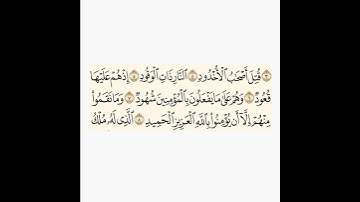 ٣ قُتِلَ أَصْحَٰبُ ٱلْأُخْدُودِ ٤ ٱلنَّارِ ذَاتِ ٱلْوَقُودِ ٥ إِذْ هُمْ عَلَيْهَا
قُعُودٌ ٦ وَهُمْ عَلَىٰ مَا يَفْعَلُونَ بِٱلْمُؤْمِنِينَ شُهُودٌ ٧ وَمَا نَقَمُوا۟
مِنْهُمْ إِلَّآ أَن يُؤْمِنُوا۟ بِٱللَّهِ ٱلْعَزِيزِ ٱلْحَمِيدِ ٨ ٱلَّذِى لَهُۥ مُلْكُ